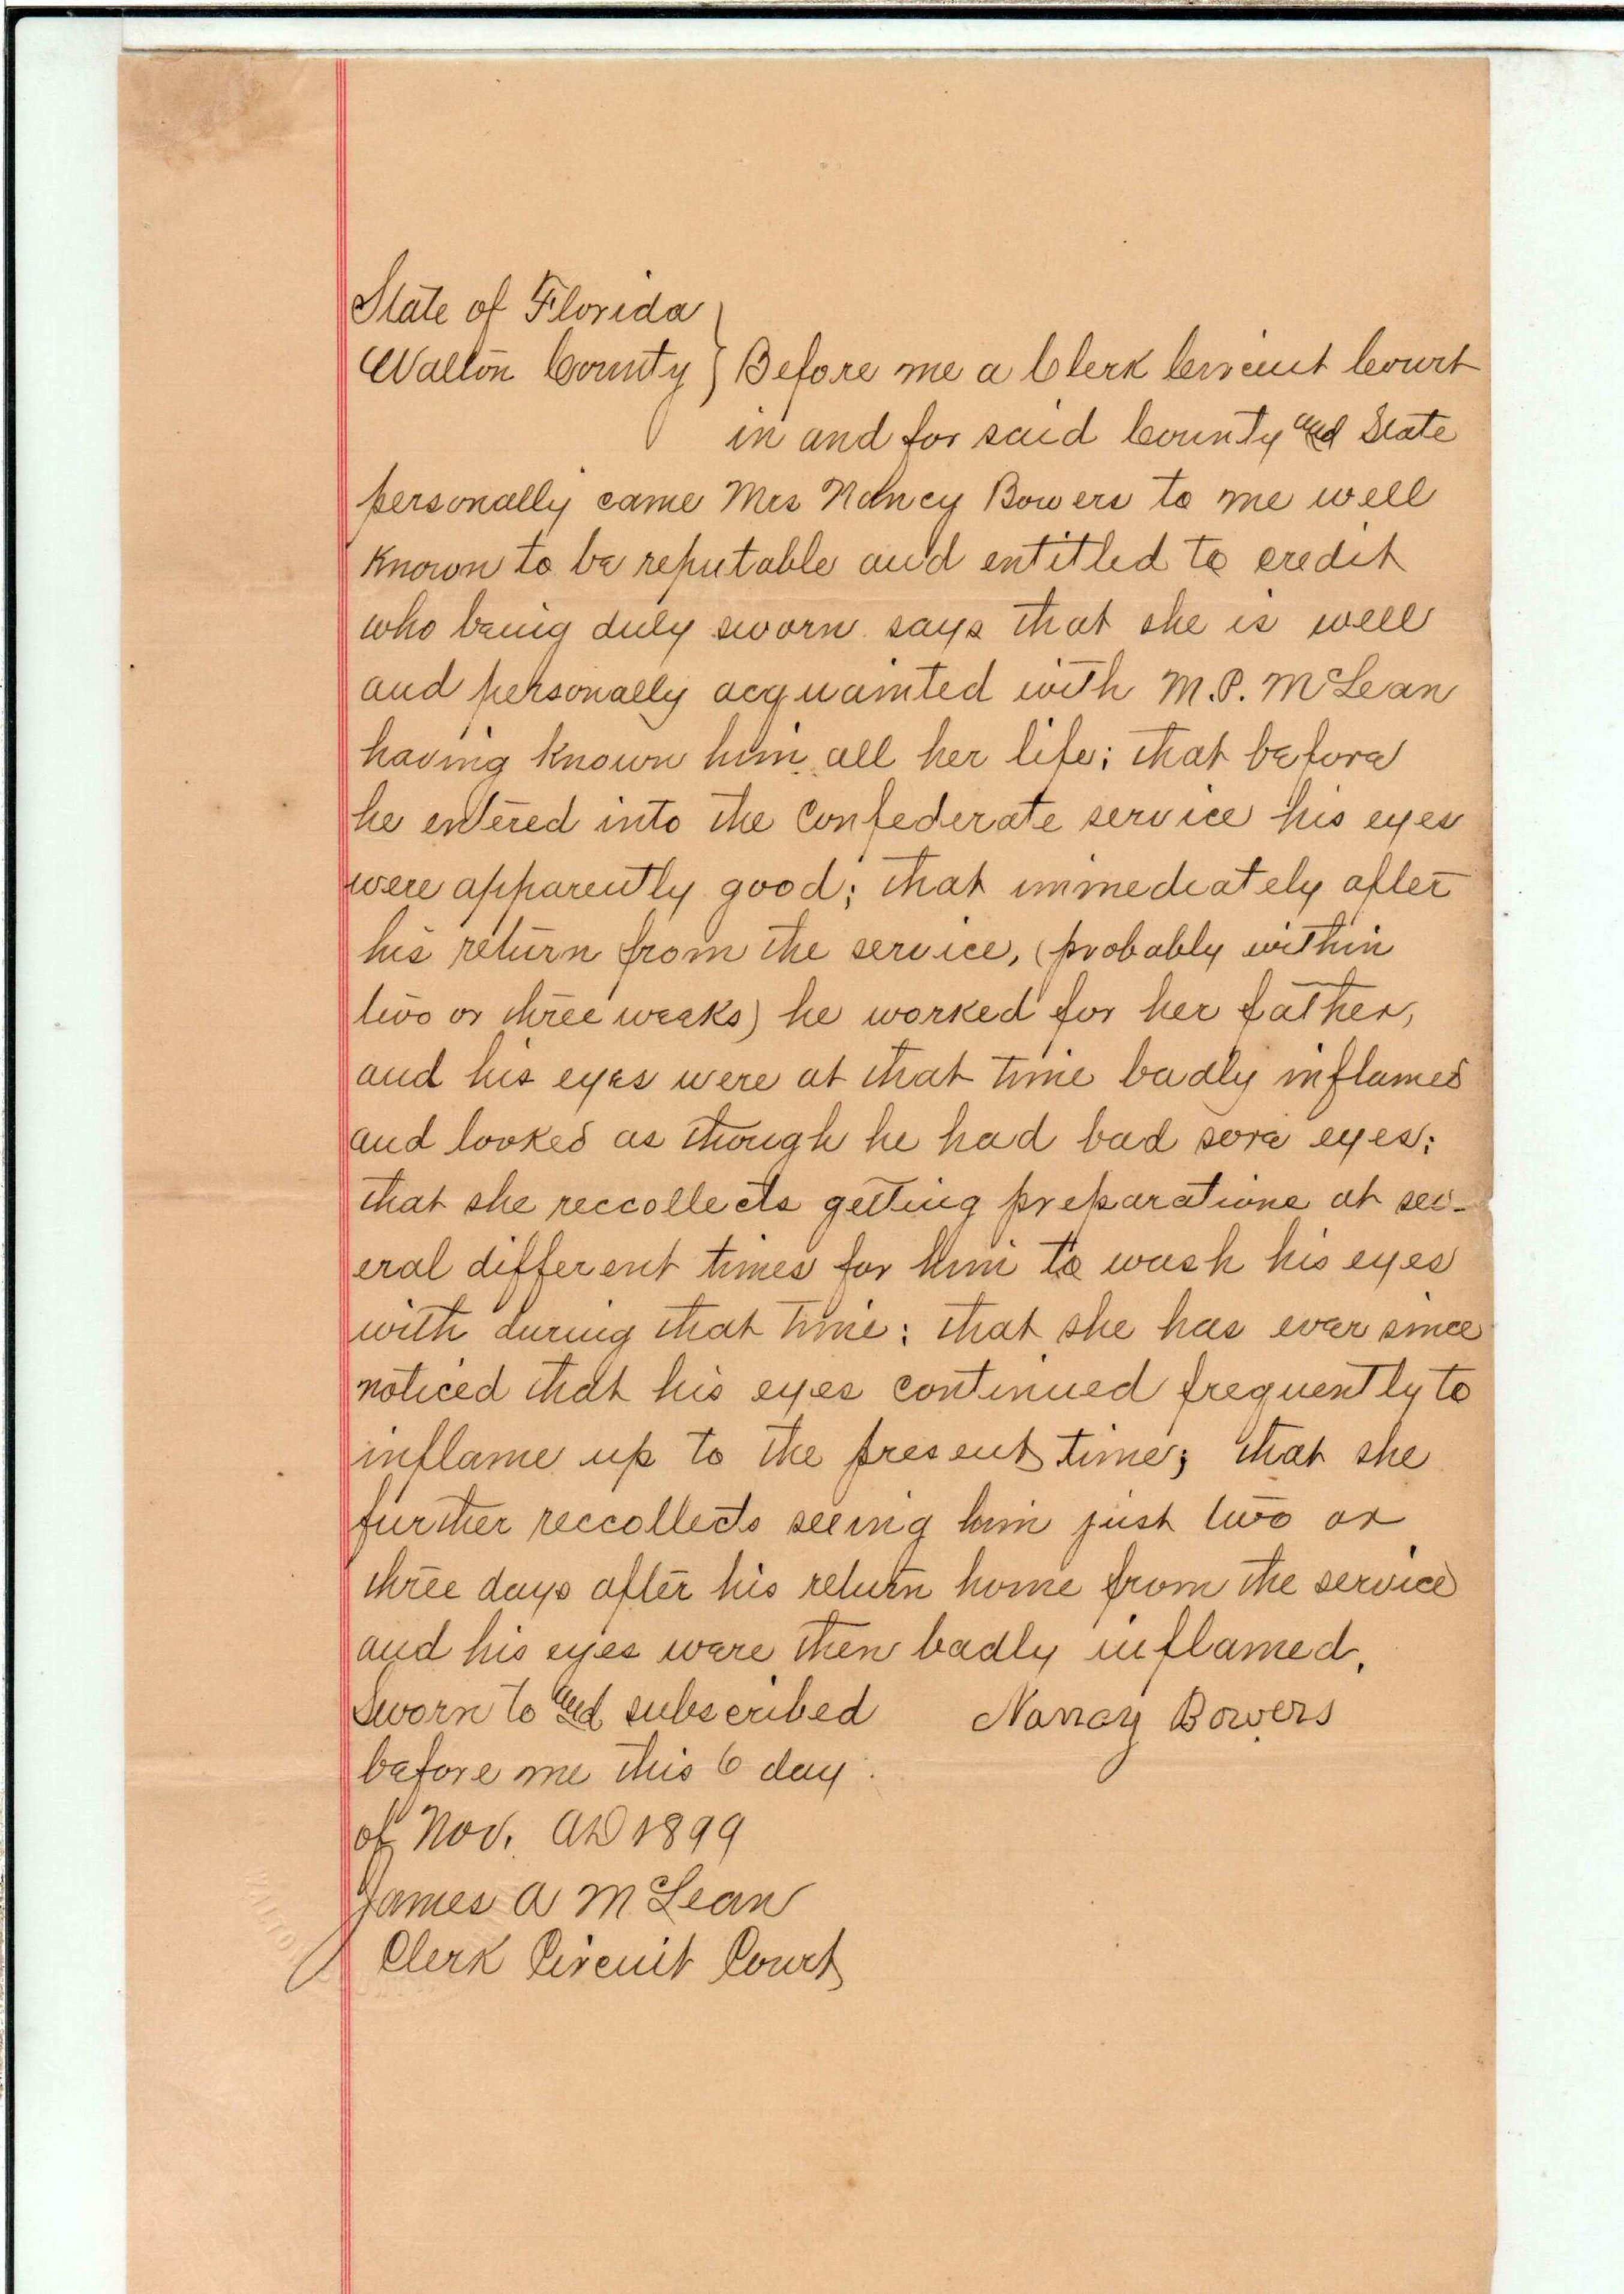 State of Florida
Walton County } Before me a Clerk Circuit Court
in and for said County and State
personally came Mrs Nancy Bowers to me well
known to be reputable and entitled to credit
who being duly sworn says that she is well
and personally acquainted with M.P. McLean
having known him all her life; that before
he entered into the Confederate service his eyes
were apparently good; that immediately after
his return from the service, (probably within
two or three weeks) he worked for her father,
and his eyes were at that time badly inflamed
and looked as though he had bad sore eyes;
that she reccollects getting preparations at sev-
eral different times for him to wash his eyes
with during that time; that she has ever since
noticed that his eyes continued frequently to
inflame up to the present time; that she
further reccollects seeing him just two or
three days after his return home from the service
and his eyes were then badly inflamed.
Sworn to and subscribed Nancy Bowers
before me this 6 day
of Nov. AD 1899
James A McLean
Clerk Circuit Court